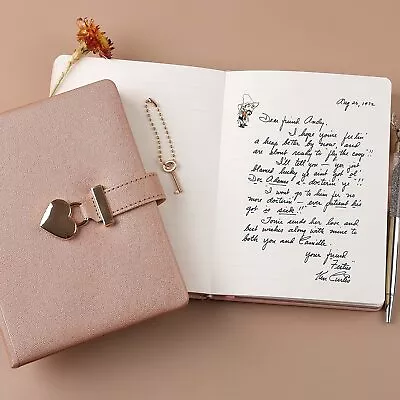 Aug 23, 1972
Dear friend Andy,
I hope you're feelin'
a heap better by now, and
are blont ready to fly the coop"!!
I'll tell you – yer jist
blamed lucky yo aint got ol'
Doc Adams' a-doctorin' ye"!!
I wont go to him fer no
more doctorin' – ever patient his
got so sick!!"
Torrie sends her love and
best wishes along with mine to
both you and Camille.
your friend
"Festus"
Ken Curtis